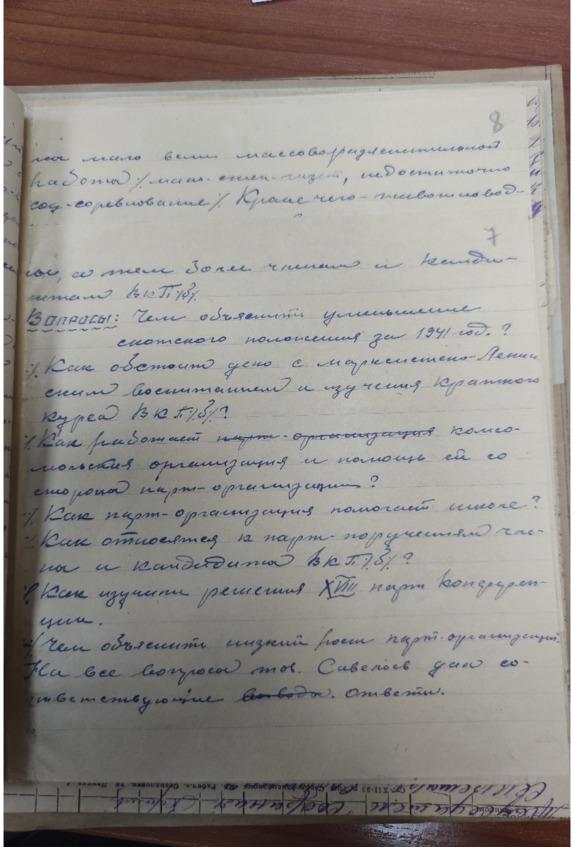 8
на мало вели массоворазяснительной
работа /мало стен-газет, недостаточно
соц-соревнование/. Кроме чего-животновод-
7
ов, а тем более членам и канди-
датам ВКП/б/.
Вопросы: Чем объяснить уменьшение
скотского положения за 1941-год.?
Как обстоит дело с марксистско-Ленин
ским воспитанием и изучения Краткого
курса ВКП/б/?
Как работает парт-организация комсо-
мольская организация и помощь ей со
стороны парт-организации?
Как парт-организация помогает школе?
Как относятся к парт-поручениям чле-
ны и кандидаты ВКП/б/?
Как изучили решения XVIII парт конферен-
ции.
Чем объяснить низкий рост парт-организации.
На все вопроса тов. Савелов дал со-
ответствующие выводы. ответи.